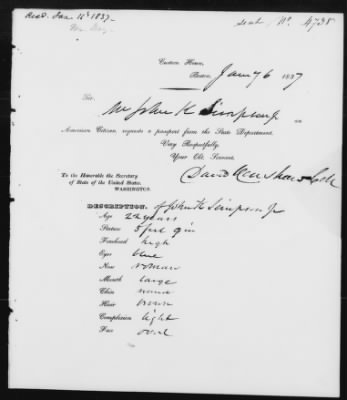 Recd. Jan. 10th 1837 -
sent / No. 4738
Custom House,
Boston, Jany 6 1837
Sir,
Mr John K Simpson Jr. an
American Citizen, requests a passport from the State Department.
Very Respectfully,
Your Obt. Servant,
David Henshaw Coll
To the Honorable the Secretary
of State of the United States.
WASHINGTON.
DESCRIPTION. of John K Simpson Jr
Age 22 years
Stature 5 feet 9 in
Forehead high
Eyes blue
Nose roman
Mouth large
Chin round
Hair brown
Complexion light
Face oval